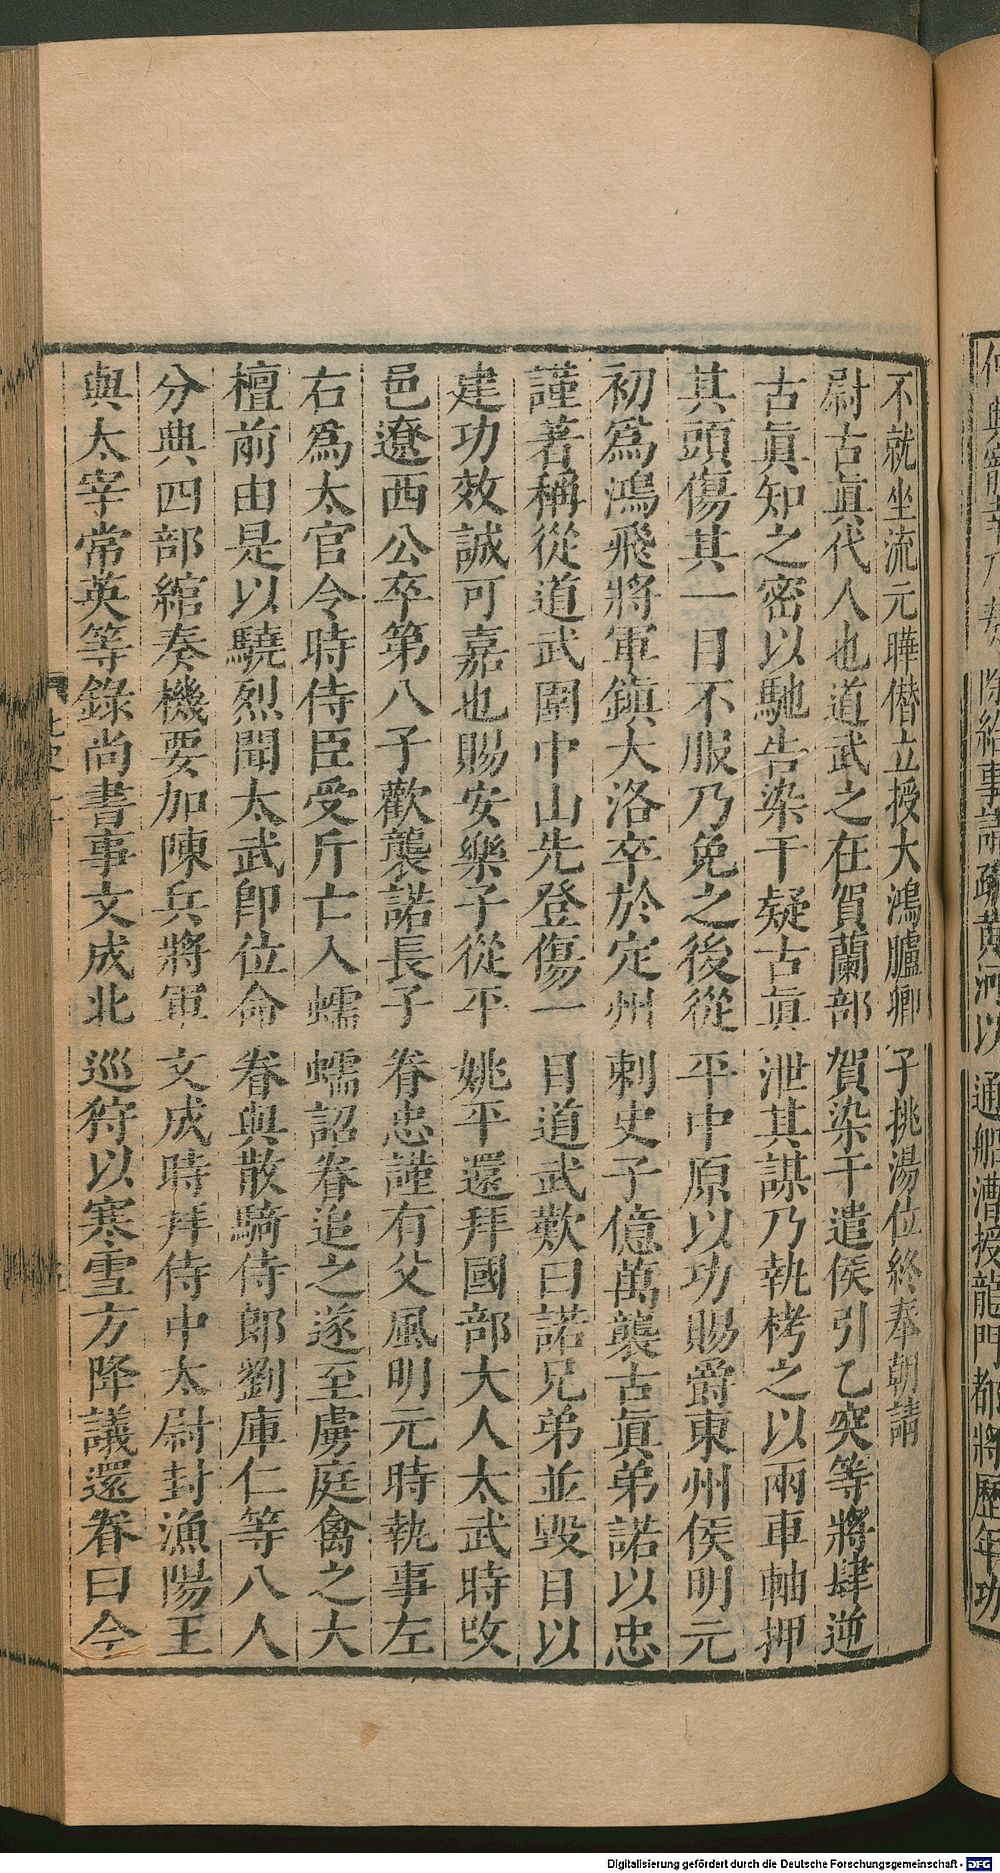 不就坐流元曄僣立授大鴻臚卿子挑湯位終奉朝請
尉古眞代人也道武之在賀蘭部賀染干遣侯引乙突等將肆逆
古眞知之密以馳告染干疑古眞泄其謀乃執栲之以兩車軸押
其頭傷其一目不服乃免之後從平中原以功賜爵東州侯明元
初爲鴻飛將軍鎮大洛卒於定州刺史子億萬襲古眞弟諾以忠
謹著稱從道武圍中山先登傷一目道武歎曰諾兄弟並毀目以
建功效誠可嘉也賜安樂子從平姚平還拜國部大人太武時改
邑遼西公卒第八子歡襲諾長子眷忠謹有父風明元時執事左
右爲太官令時侍臣受斤亡入蠕蠕詔眷追之遂至虜庭禽之大
檀前由是以驍烈聞太武卽位命眷與散騎侍郎劉庫仁等八人
分典四部綰奏機要加陳兵將軍文成時拜侍中太尉封漁陽王
與太宰常英等錄尚書事文成北巡狩以寒雪方降議還眷曰今
通船漕授龍門都將歷年功
Digitalisierung gefördert durch die Deutsche Forschungsgemeinschaft - DFG